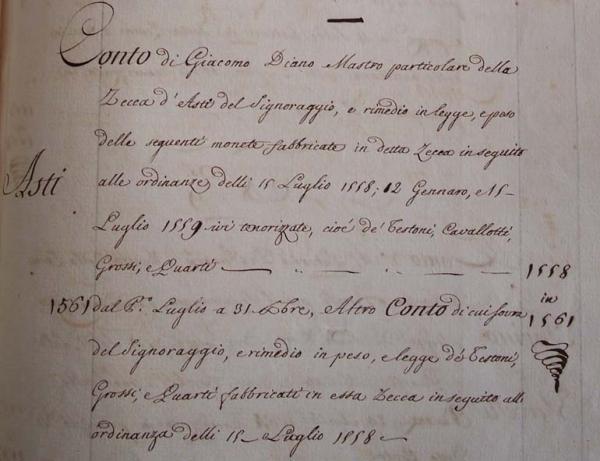 Conto di Giacomo Diano Mastro particolare della
Zecca d'Asti del Signoraggio, e rimedio in legge, e peso
delle seguenti monete fabbricate in detta Zecca in seguito
Asti
alle ordinanze delli 15 Luglio 1558; 12 Gennaro, e 15
Luglio 1559 ivi tenorizzate, cioé de' Testoni, Cavallotti,
Grossi, e Quarti — 1558
in
1561
1561 dal P.º Luglio a 31 Xbre, Altro Conto di cui sovra
del Signoraggio, e rimedio in peso, e legge de' Testoni,
Grossi, e Quarti fabbricati in essa Zecca in seguito all'
ordinanza delli 15 Luglio 1558